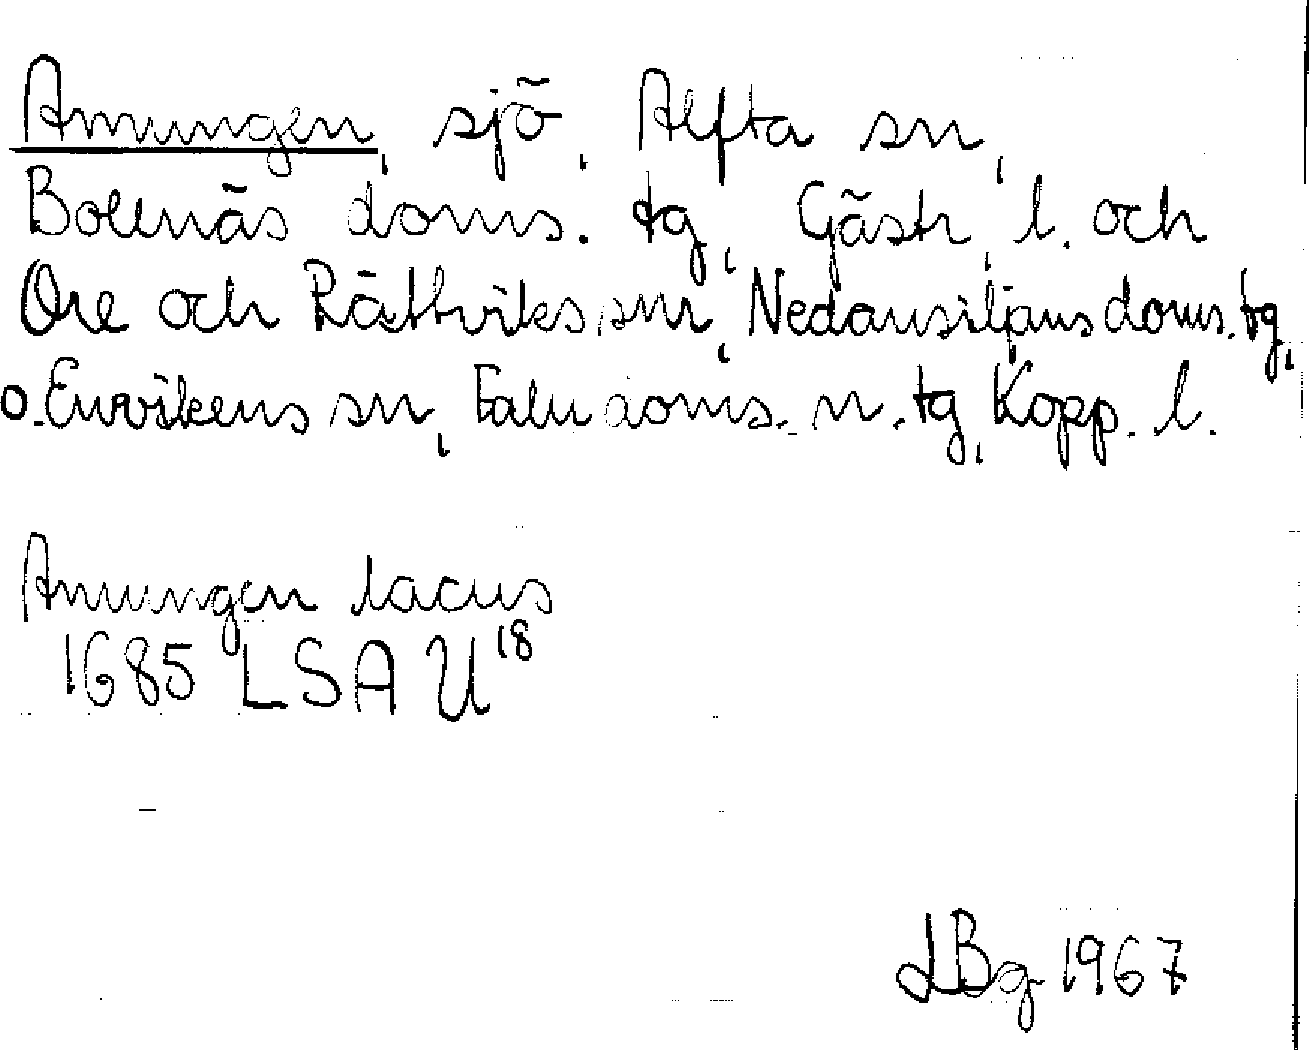 Amungen, sjö, Alfta sn,
Bollnäs doms. tg, Gästr. l. och
Ore och Rättviks snr, Nedansiljans doms. tg,
o. Envikens sn, Falu doms. n. tg, Kopp. l.
Amungen lacus
1685 LSA U18
LBg 1967